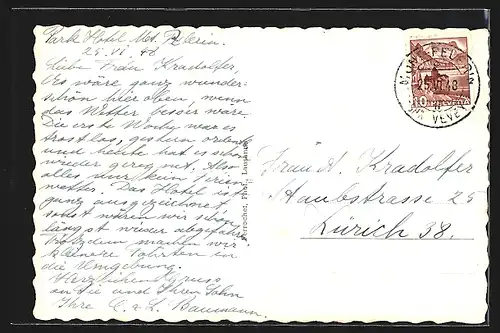 Park Hotel Mt. Pèlerin.
25. VI. 48
Liebe Frau Kradolfer,
Es wäre ganz wunder-
schön hier oben, wenn
das Wetter besser wäre.
Die erste Woche war es
trostlos, gestern
und heute hat es schon
wieder geregnet. Also
alles nur kein Ferien
wetter. Das Hotel ist
ganz ausgezeichnet
sonst wären wir schon
längst wieder abgefahren
Trotzdem machen wir
kleinere Fahrten in
die Umgebung.
Herzlichen Gruss
an Sie und Ihren Sohn
Ihre C. & L. Baumann.
Perrochet, Phot., Lausanne
MONT PELERIN
25.VI.48
VEVEY
10 HELVETIA
Frau A. Kradolfer
Haubstrasse 25
Zürich 38.